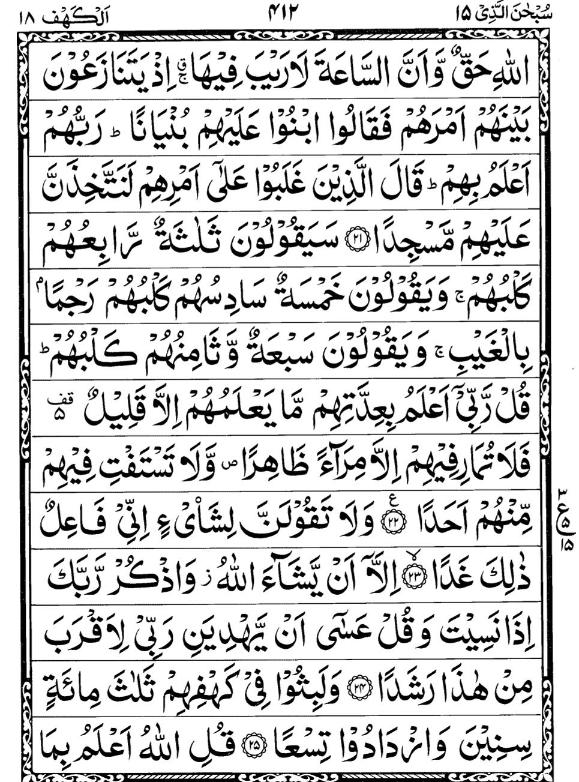 سُبْحٰنَ الَّذِیْۤ ۱۵
۴۱۲
اَلْکَهْف ۱۸
اللّٰهِ حَقٌّ وَّاَنَّ السَّاعَةَ لَا رَیْبَ فِیْهَا ۚ اِذْ یَتَنَازَعُوْنَ
بَیْنَهُمْ اَمْرَهُمْ فَقَالُوا ابْنُوْا عَلَیْهِمْ بُنْیَانًا ؕ رَبُّهُمْ
اَعْلَمُ بِهِمْ ؕ قَالَ الَّذِیْنَ غَلَبُوْا عَلٰۤی اَمْرِهِمْ لَنَتَّخِذَنَّ
عَلَیْهِمْ مَّسْجِدًا ﴿۲۱﴾ سَیَقُوْلُوْنَ ثَلٰثَةٌ رَّابِعُهُمْ
کَلْبُهُمْ ۚ وَیَقُوْلُوْنَ خَمْسَةٌ سَادِسُهُمْ کَلْبُهُمْ رَجْمًۢا
بِالْغَیْبِ ۚ وَیَقُوْلُوْنَ سَبْعَةٌ وَّثَامِنُهُمْ کَلْبُهُمْ ؕ
قُلْ رَّبِّیْۤ اَعْلَمُ بِعِدَّتِهِمْ مَّا یَعْلَمُهُمْ اِلَّا قَلِیْلٌ قف ۵
فَلَا تُمَارِ فِیْهِمْ اِلَّا مِرَآءً ظَاهِرًا ص وَّلَا تَسْتَفْتِ فِیْهِمْ
مِّنْهُمْ اَحَدًا ﴿۲۲﴾ ع وَلَا تَقُوْلَنَّ لِشَایْءٍ اِنِّیْ فَاعِلٌ
ذٰلِكَ غَدًا ﴿۲۳﴾ لا اِلَّاۤ اَنْ یَّشَآءَ اللّٰهُ ز وَاذْکُرْ رَّبَّكَ
اِذَا نَسِیْتَ وَقُلْ عَسٰۤی اَنْ یَّهْدِیَنِ رَبِّیْ لِاَقْرَبَ
مِنْ هٰذَا رَشَدًا ﴿۲۴﴾ وَلَبِثُوْا فِیْ کَهْفِهِمْ ثَلٰثَ مِائَةٍ
سِنِیْنَ وَازْدَادُوْا تِسْعًا ﴿۲۵﴾ قُلِ اللّٰهُ اَعْلَمُ بِمَا
۳
ع ۵
۱۵